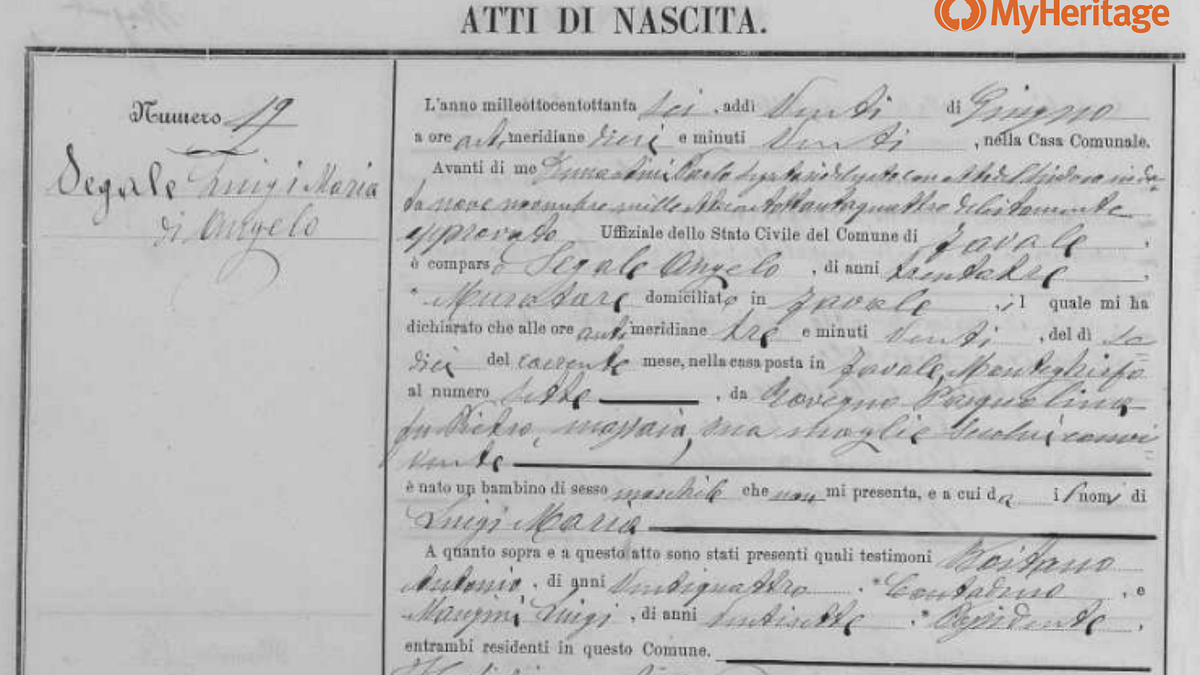 ATTI DI NASCITA.
MyHeritage
Numero 19
Segale Luigi Maria
di Angelo
L'anno milleottocentottanta sei, addì venti di Giugno
a ore anti meridiane dieci e minuti venti, nella Casa Comunale.
Avanti di me Carlo Segretario delegato con atto del Sindaco in da-
ta nove novembre mille ottocentottantaquattro debitamente
approvato Uffiziale dello Stato Civile del Comune di Favale,
è comparso Segale Angelo, di anni trentatre
Muratore domiciliato in Favale, il quale mi ha
dichiarato che alle ore anti meridiane tre e minuti venti, del dì se
dici del corrente mese, nella casa posta in Favale, Monteghirfo
al numero sette, da Rovegno Pasqualina
fu Pietro, massaia, sua moglie seco lui convi
vente
è nato un bambino di sesso maschile che non mi presenta, e a cui dà i nomi di
Luigi Maria
A quanto sopra e a questo atto sono stati presenti quali testimoni Boitano
Antonio, di anni ventiquattro, Contadino, e
Luigi, di anni ventisette,
entrambi residenti in questo Comune.